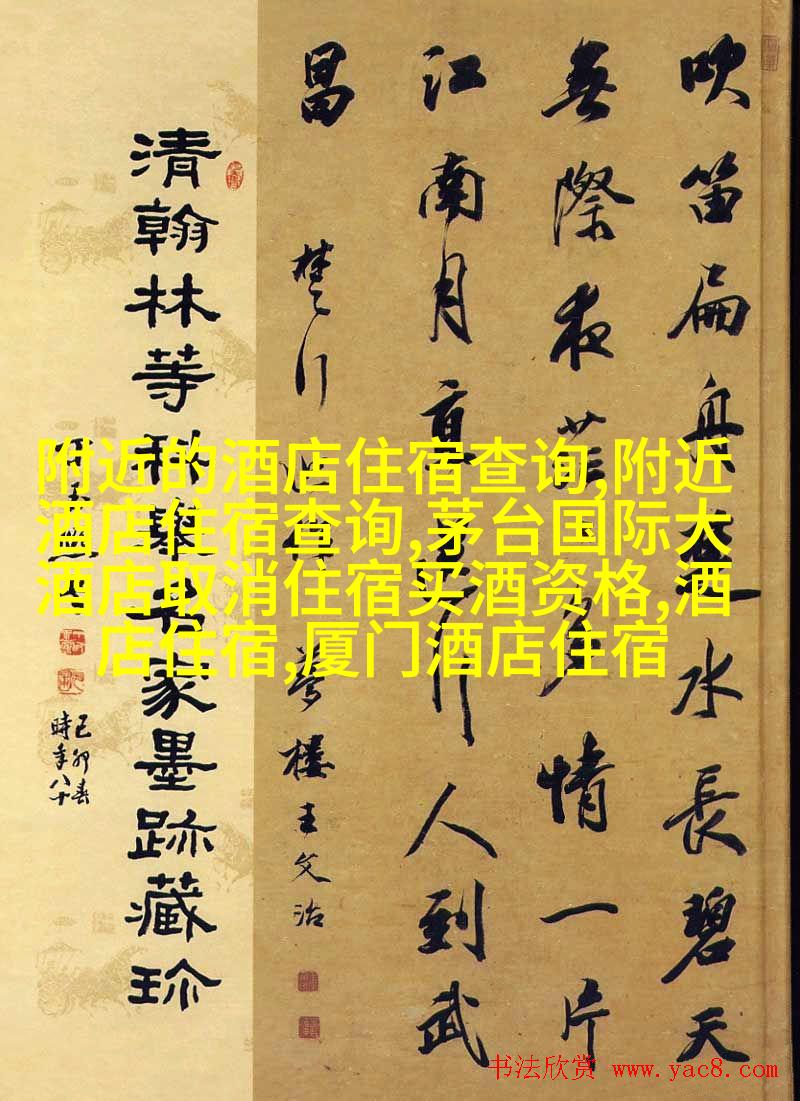 吹笛扁舟水長碧天
無際夜多情一片
江南月直行人到武
昌
楚行 夢樓王文治
清翰林等家墨跡藏珍
己卯春
時年八十
附近的酒店住宿查询,附近
酒店住宿查询,茅台国际大
酒店取消住宿买酒资格,酒
店住宿,厦门酒店住宿
书法欣赏 www.yac8.com